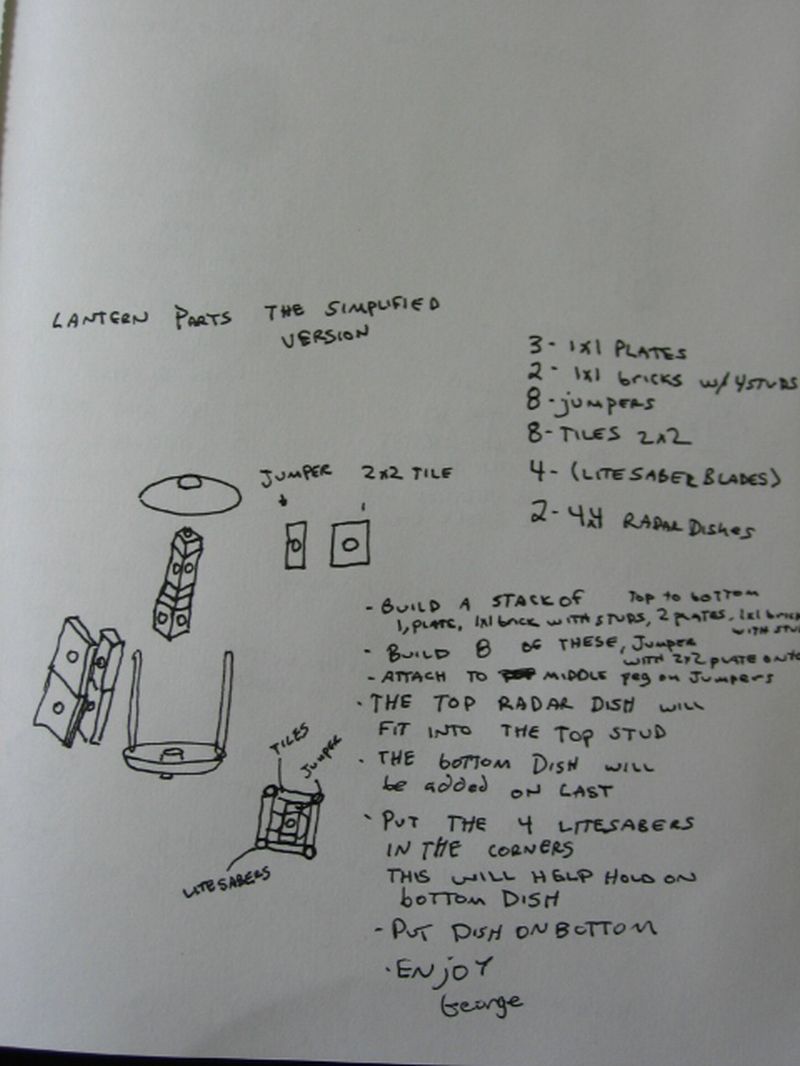 LANTERN PARTS THE SIMPLIFIED
VERSION
3- 1x1 PLATES
2- 1x1 bricks w/ 4 STUDS
8- jumpers
8- TILES 2x2
4- (LITESABER BLADES)
2- 4x4 RADAR DISHES
JUMPER 2x2 TILE
- BUILD A STACK OF TOP to bottom
1, PLATE, 1x1 brick WITH STUDS, 2 PLATES, 1x1 brick
WITH
- BUILD 8 OF THESE, JUMPER
WITH 2x2 PLATE
- ATTACH TO MIDDLE peg on Jumpers
· THE TOP RADAR DISH WILL
FIT INTO THE TOP STUD
· THE bOTTOM DISH WILL
be added ON LAST
· PUT THE 4 LITESABERS
IN THE CORNERS
THIS WILL HELP HOLD ON
bOTTOM DISH
- PUT DISH ON BOTTOM
· ENJOY
George
TILES
JUMPER
LITESABERS